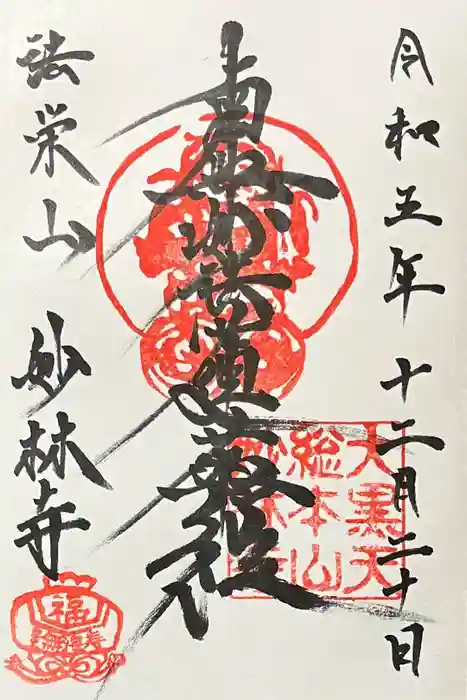 令和五年十二月二十日
南無妙法蓮華経
法栄山 妙林寺
大黒天
総本山
福